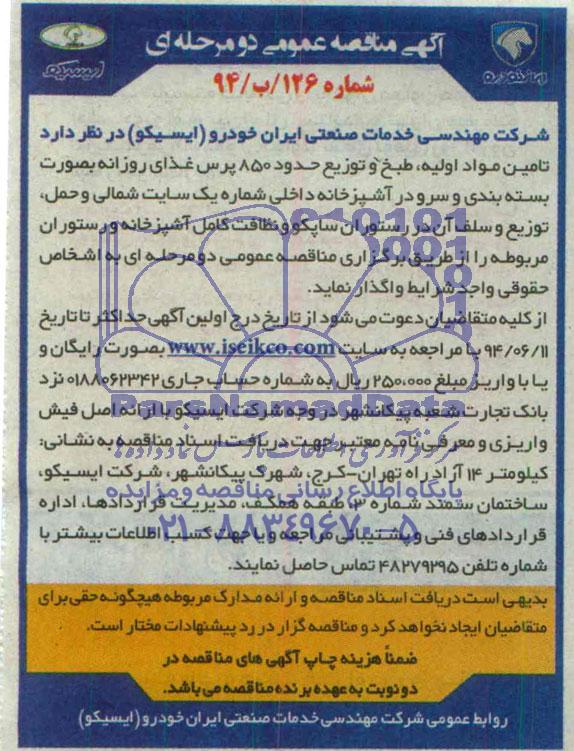 آگهی مناقصه عمومی دو مرحله ای
ایران خودرو
ایسیکو
شماره ۱۲۶/ب/۹۴
شرکت مهندسی خدمات صنعتی ایران خودرو (ایسیکو) در نظر دارد
تامین مواد اولیه، طبخ و توزیع حدود ۸۵۰ پرس غذای روزانه بصورت
بسته بندی و سرو در آشپزخانه داخلی شماره یک سایت شمالی و حمل،
توزیع و سلف آن در رستوران ساپکو و نظافت کامل آشپزخانه و رستوران
مربوطه را از طریق برگزاری مناقصه عمومی دو مرحله ای به اشخاص
حقوقی واجد شرایط واگذار نماید.
از کلیه متقاضیان دعوت می شود از تاریخ درج اولین آگهی حداکثر تا تاریخ
۹۴/۰۶/۱۱ با مراجعه به سایت www.iseikco.com بصورت رایگان و
یا با واریز مبلغ ۲۵۰،۰۰۰ ریال به شماره حساب جاری ۰۱۸۸۰۶۲۳۴۲ نزد
بانک تجارت شعبه پیکانشهر در وجه شرکت ایسیکو با ارائه اصل فیش
واریزی و معرفی نامه معتبر جهت دریافت اسناد مناقصه به نشانی:
کیلومتر ۱۴ آزاد راه تهران-کرج، شهرک پیکانشهر، شرکت ایسیکو،
ساختمان سمند شماره ۳، طبقه همکف، مدیریت قراردادها، اداره
قراردادهای فنی و پشتیبانی مراجعه و یا جهت کسب اطلاعات بیشتر با
شماره تلفن ۴۸۲۷۹۲۹۵ تماس حاصل نمایند.
ParsNamadData
پایگاه اطلاع رسانی مناقصه و مزایده
۰۲۱-۸۸۳۴۹۶۷۰-۵
بدیهی است دریافت اسناد مناقصه و ارائه مدارک مربوطه هیچگونه حقی برای
متقاضیان ایجاد نخواهد کرد و مناقصه گزار در رد پیشنهادات مختار است.
ضمناً هزینه چاپ آگهی های مناقصه در
دو نوبت به عهده برنده مناقصه می باشد.
روابط عمومی شرکت مهندسی خدمات صنعتی ایران خودرو (ایسیکو)